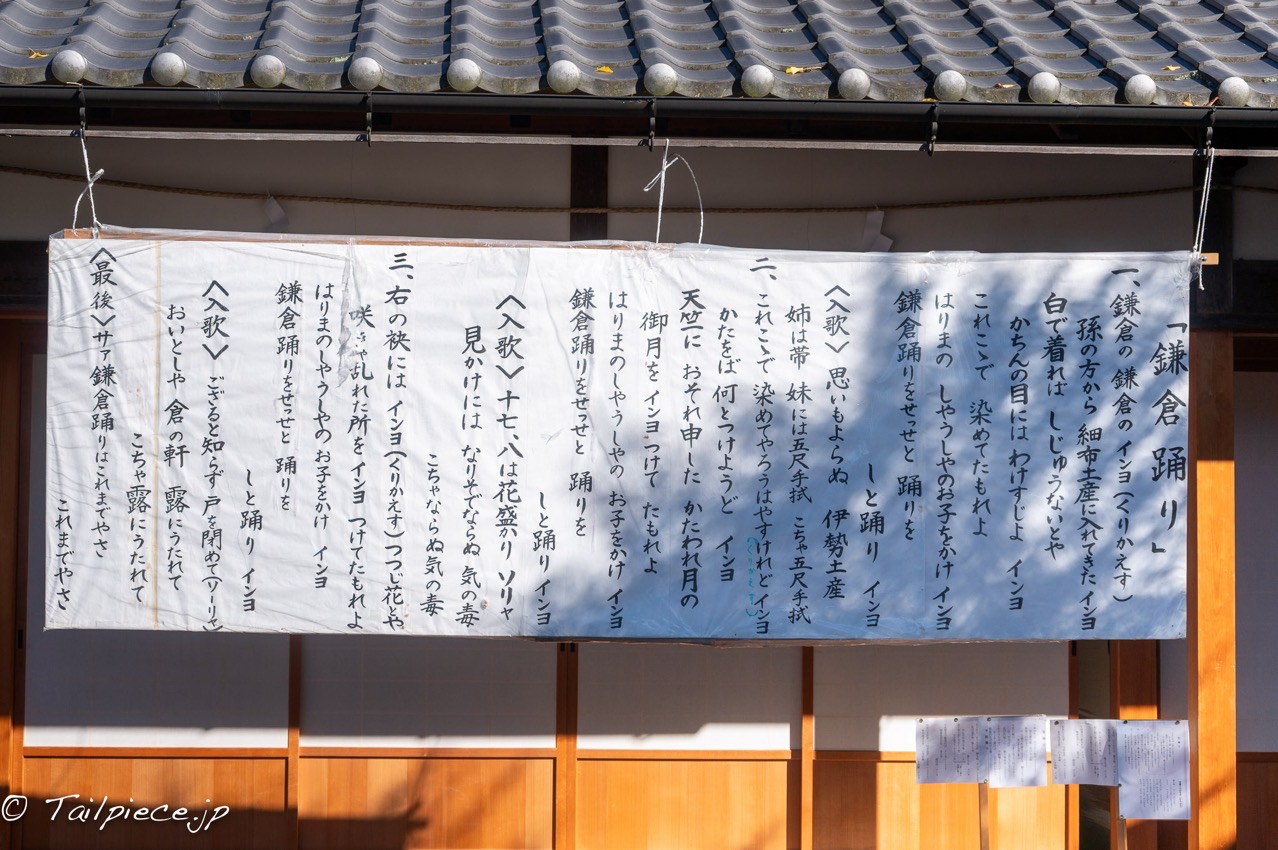 「鎌倉踊り」
一、鎌倉の 鎌倉の インヨ(くりかえす)
孫の方から 細布土産に入れてきた インヨ
白で着れば しじゅうないとや
かちんの目には わけすじよ インヨ
これこゝで 染めてたもれよ
はりまの しやうしやのお子をかけ インヨ
鎌倉踊りをせっせと 踊りを
しと踊り インヨ
〈入歌〉思いもよらぬ 伊勢土産
姉は帯 妹には五尺手拭 こちゃ五尺手拭
二、これこゝで 染めてやろうはやすけれど インヨ
(くりかえす)
かたをば 何とつけようど インヨ
天竺に おそれ申した かたわれ月の
御月を インヨ つけて たもれよ
はりまのしやうしやの お子をかけ インヨ
鎌倉踊りをせっせと 踊りを
しと踊り インヨ
〈入歌〉十七、八は花盛かり ソリャ
見かけには なりそでならぬ 気の毒
こちゃならぬ気の毒
三、右の袂には インヨ(くりかえす)つつじ花とや
咲きゃ乱れた所を インヨ つけてたもれよ
はりまのしやうしやのお子をかけ インヨ
鎌倉踊りをせっせと 踊りを
しと踊り インヨ
〈入歌〉ござると知らず 戸を閉めて(ソーリャ)
おいとしや 倉の軒 露にうたれて
こちゃ露にうたれて
〈最後〉サァ鎌倉踊りはこれまでやさ
これまでやさ
© Tailpiece.jp